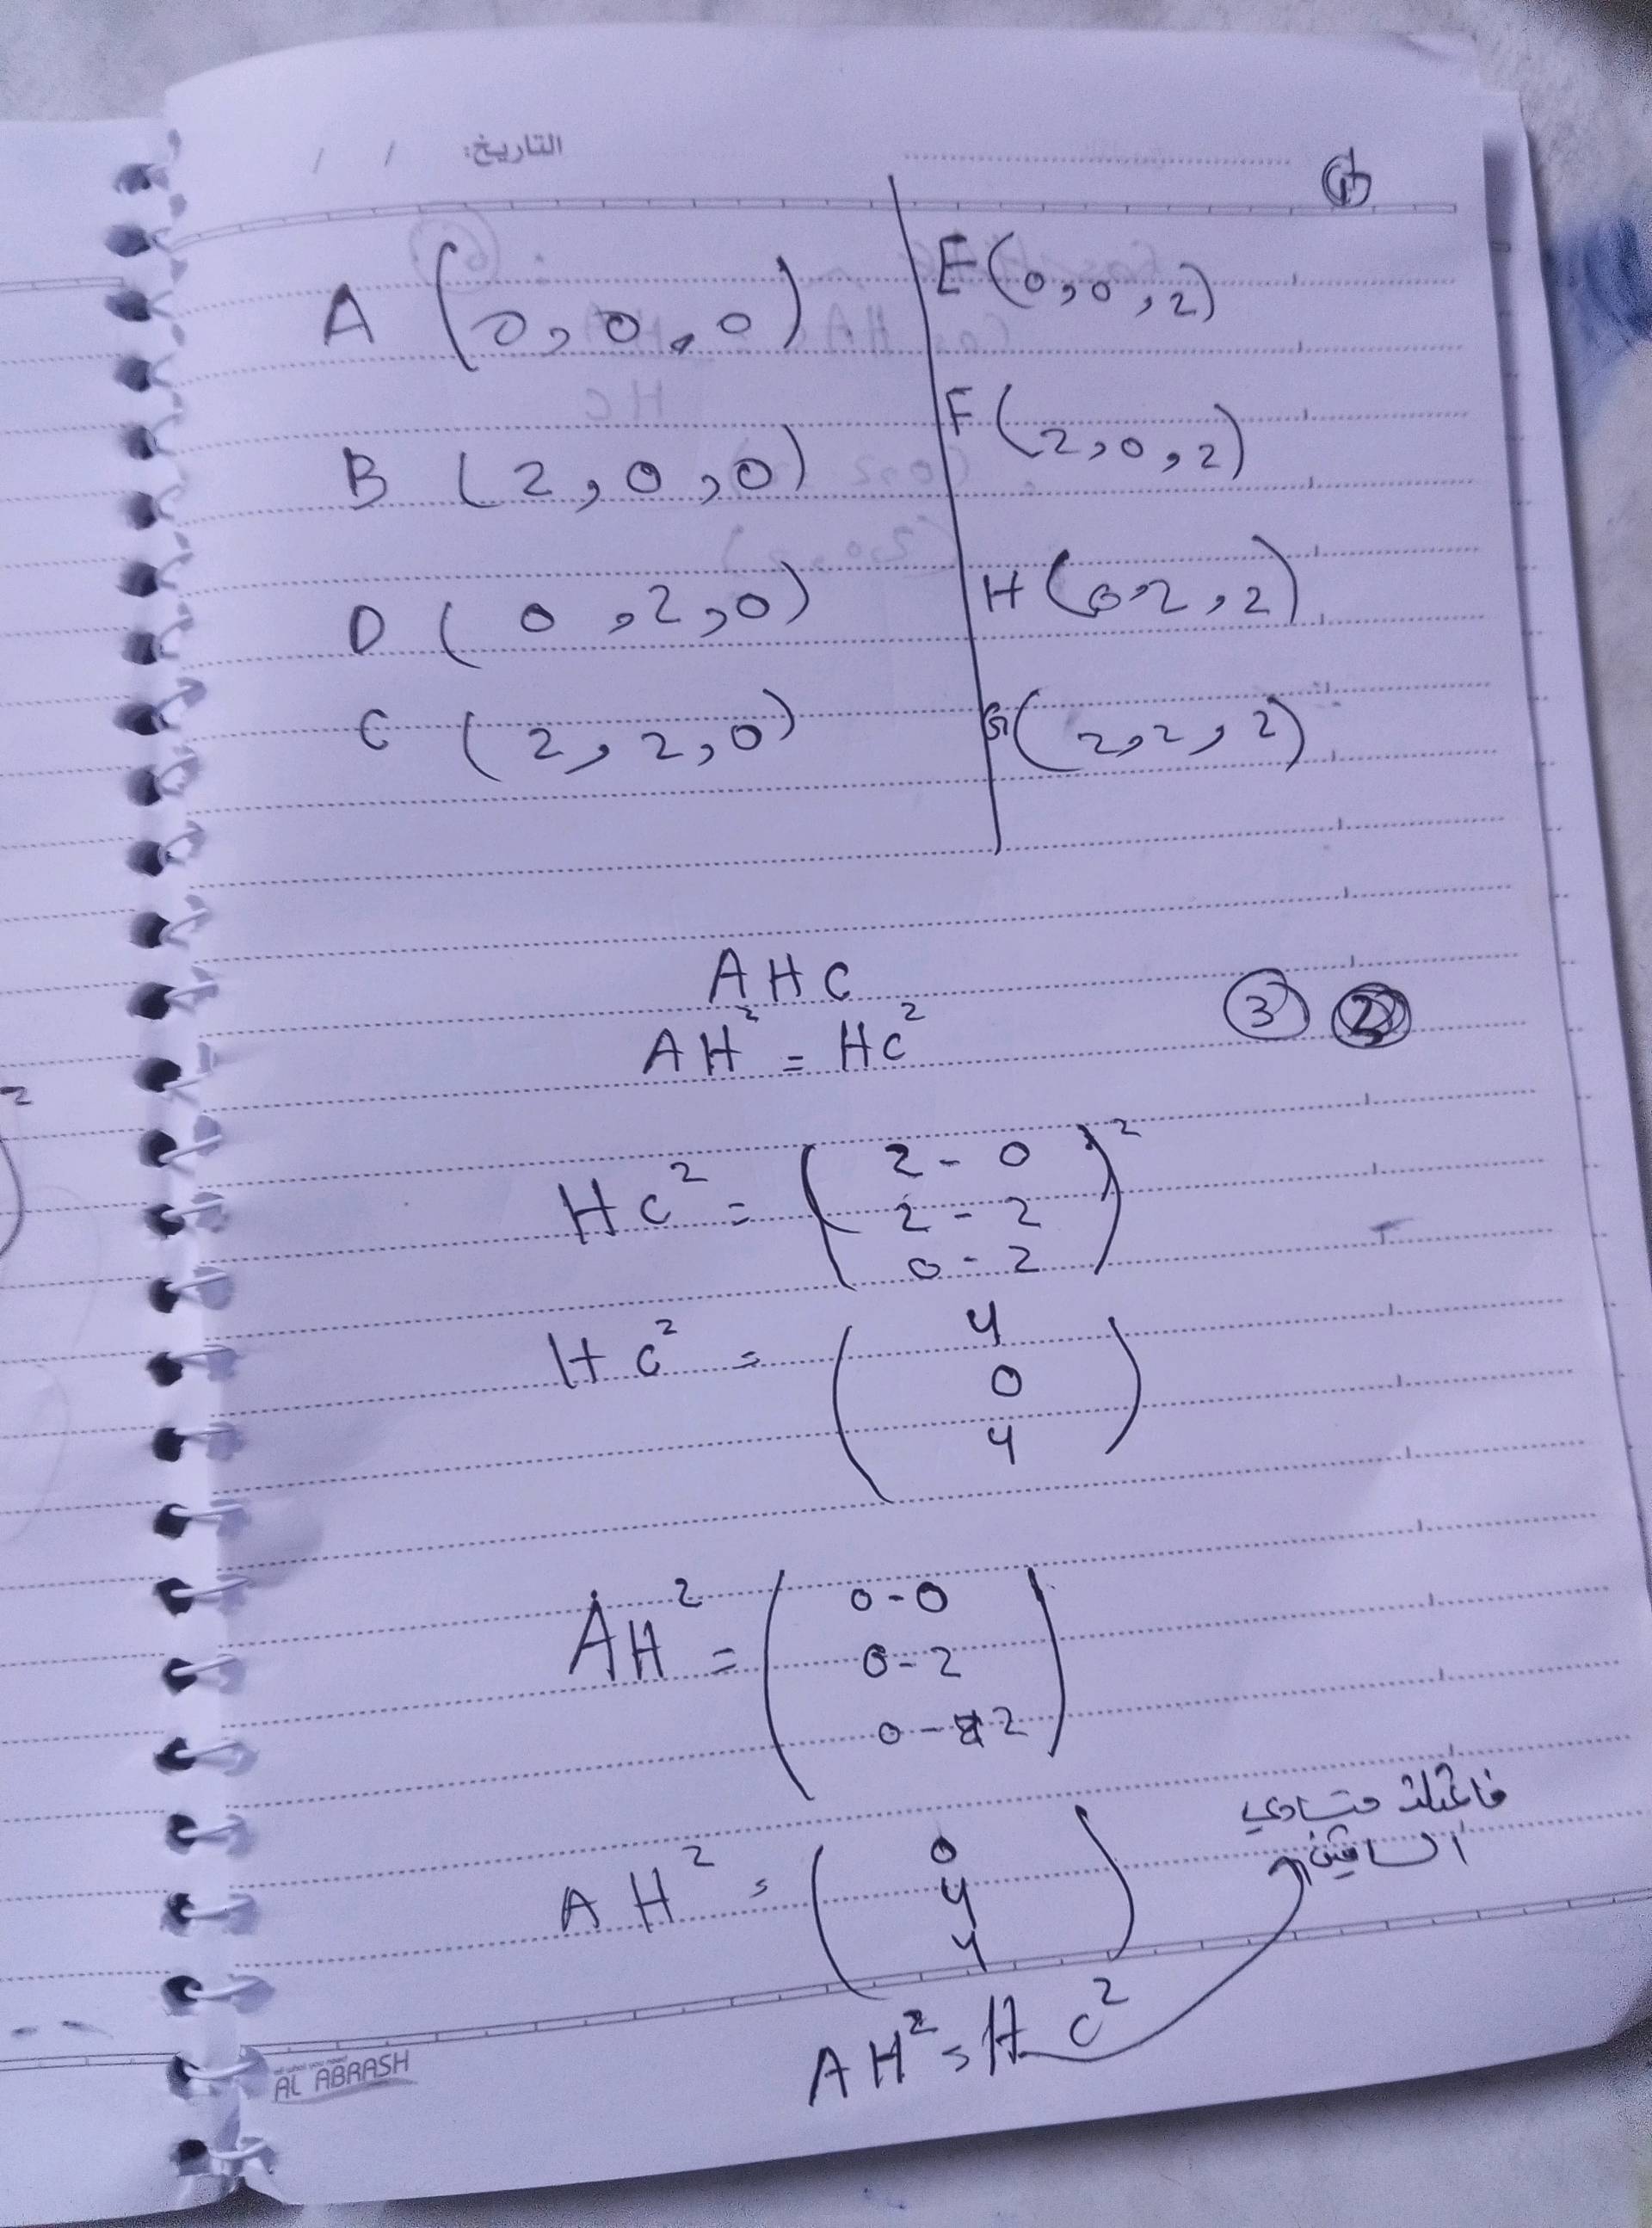 التاريخ: / /
①
A (0,0,0)
B (2,0,0)
D (0,2,0)
C (2,2,0)
E(0,0,2)
F(2,0,2)
H(0,2,2)
G(2,2,2)
③
AHC
AH² = HC²
HC² = (2-0
2-2
0-2)²
HC² = (4
0
4)
AH² = (0-0
0-2
0-2)
AH² = (0
4
4)
فالمثلث متساوي
الساقين
AH² = HC²
AL ABRASH